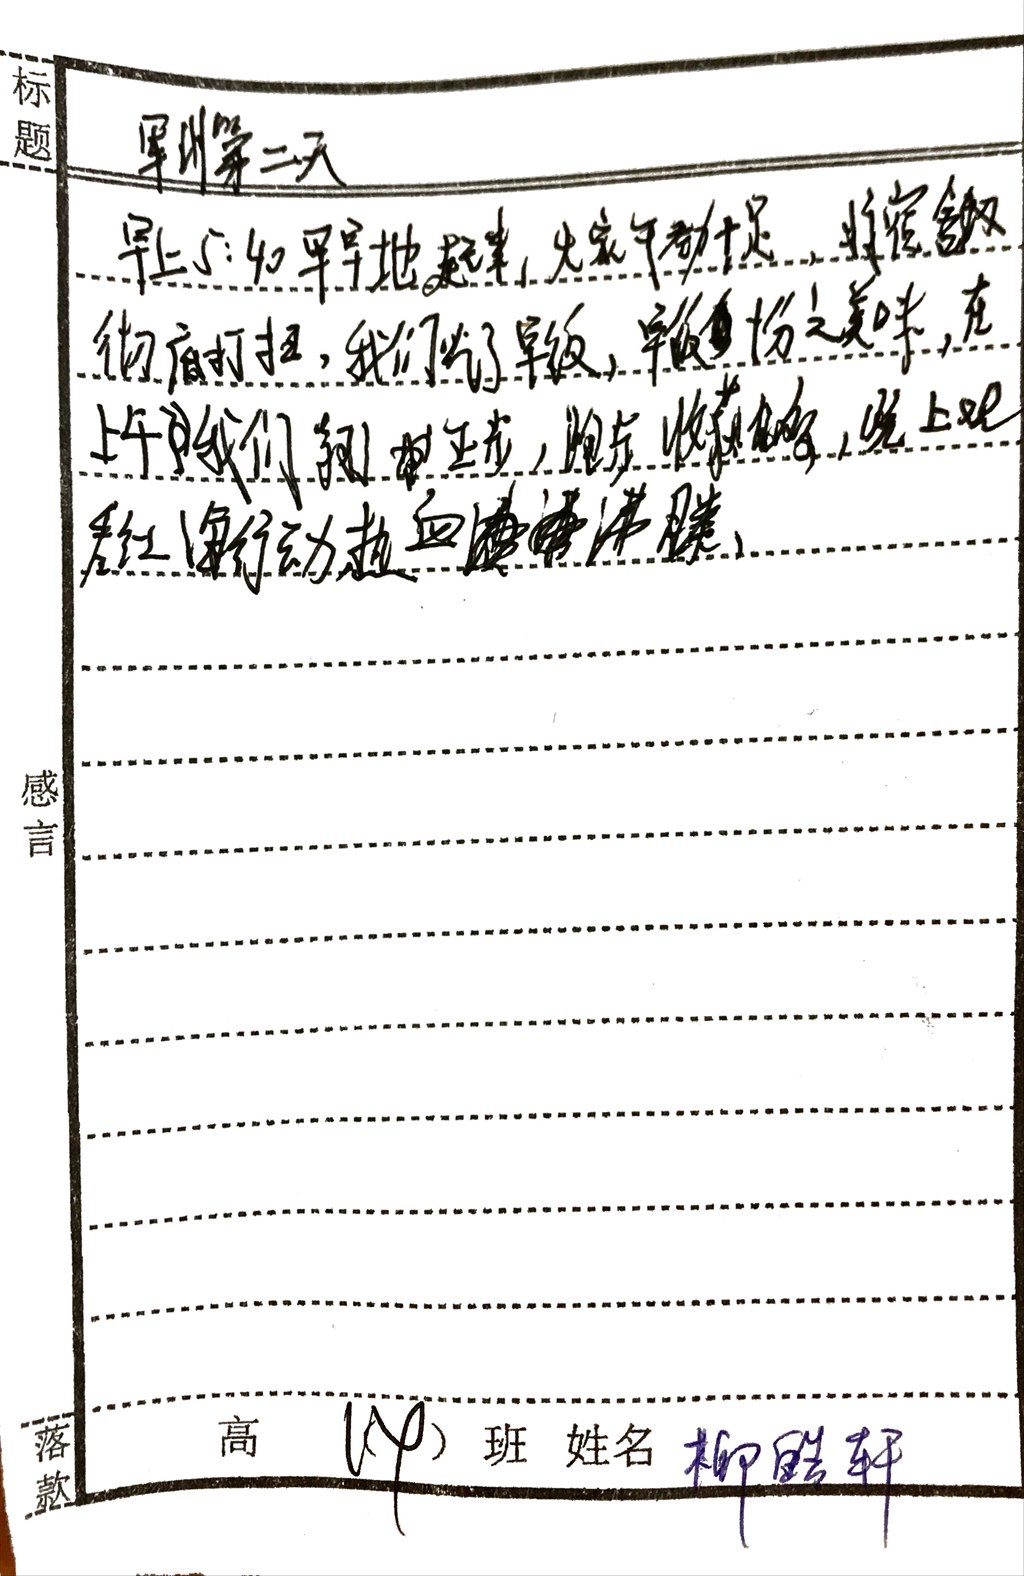 标题
军训第二天
早上5:40早早地起来,大家干劲十足,将宿舍
彻底打扫,我们吃了早饭,早饭十份之美味,在
上午我们训正步,跑步收获,晚上观
看红海行动热血沸腾,
感言
落款
高1(4)班 姓名 柳皓轩